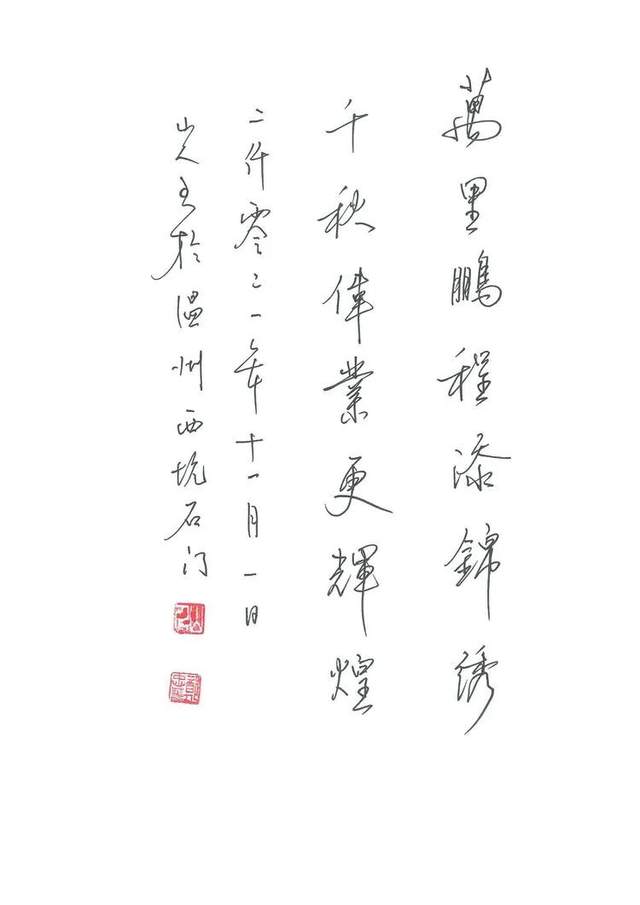 萬里鵬程添錦绣
千秋偉業更輝煌
二仟零二一年十一月一日
山人玉於温州西坑石门